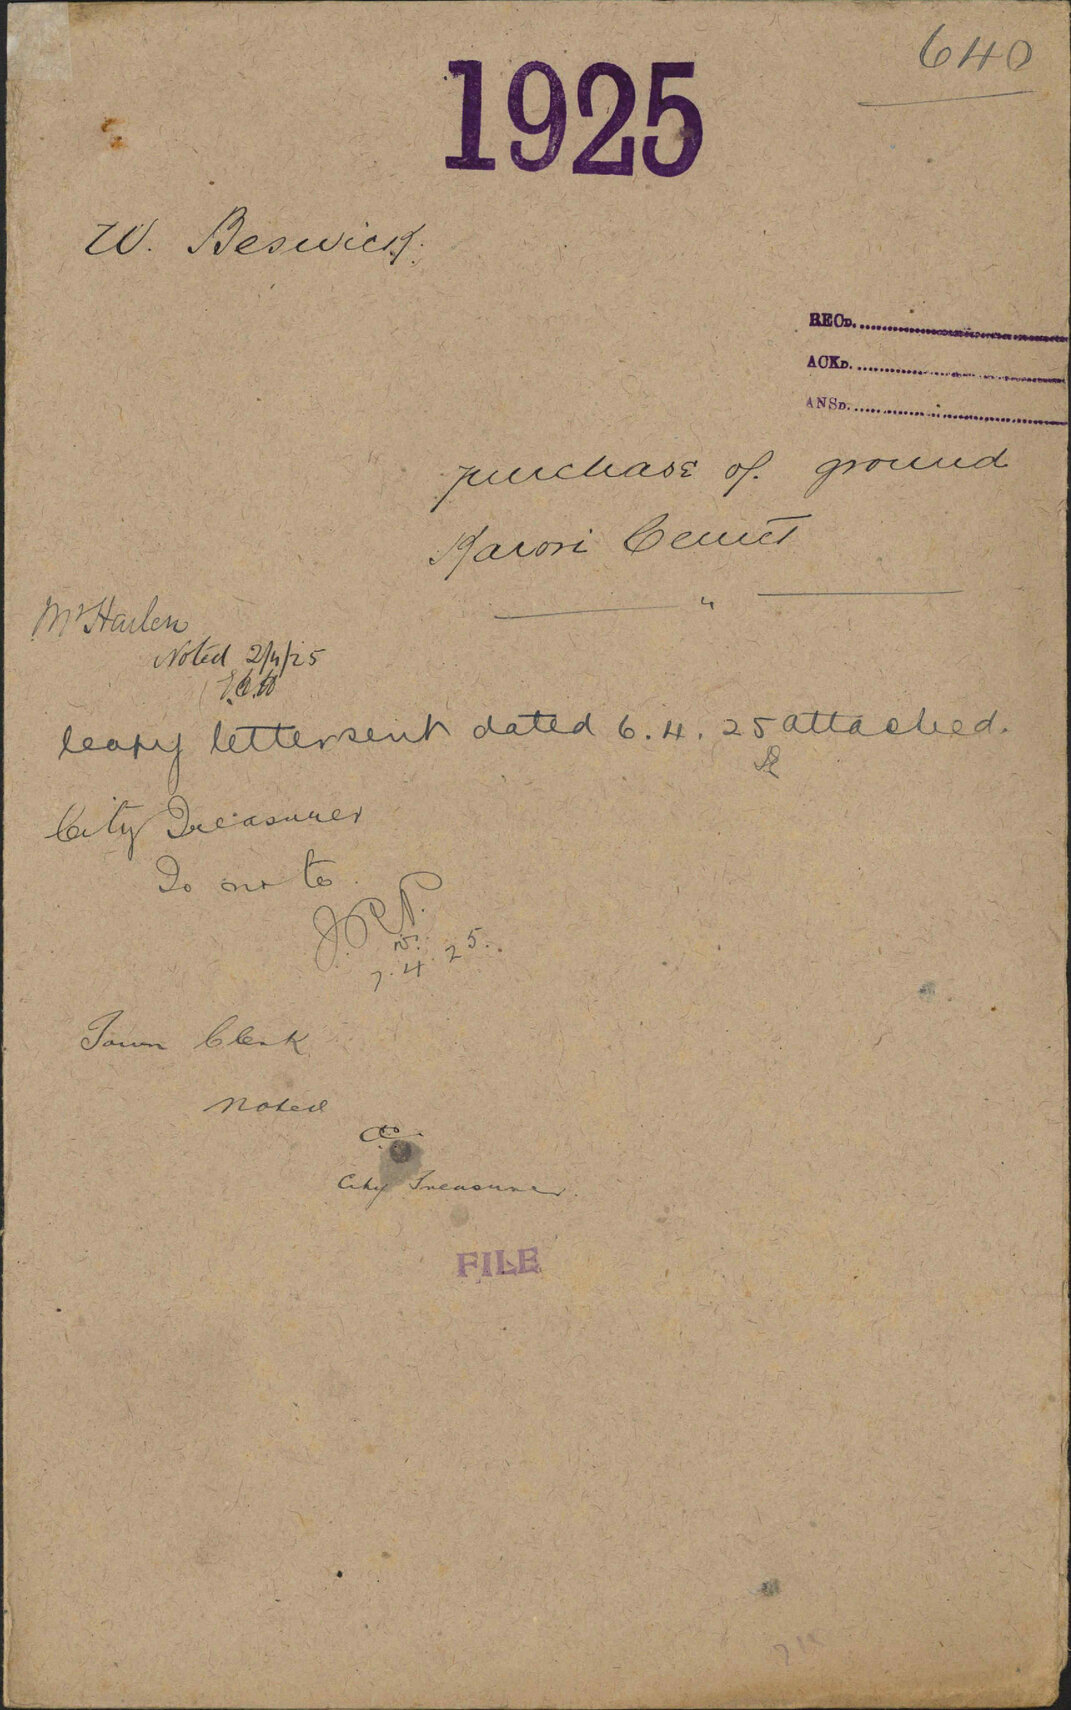 640
1925
W. Beswick.
RECD.
ACKD.
ANSD.
purchase of. ground
Karori Cemet
"
Mr Harlen
Noted 2/4/25
Copy letter sent dated 6.4.25 attached.
City Treasurer
To note.
7.4.25.
Town Clerk
Noted
City Treasurer.
FILE